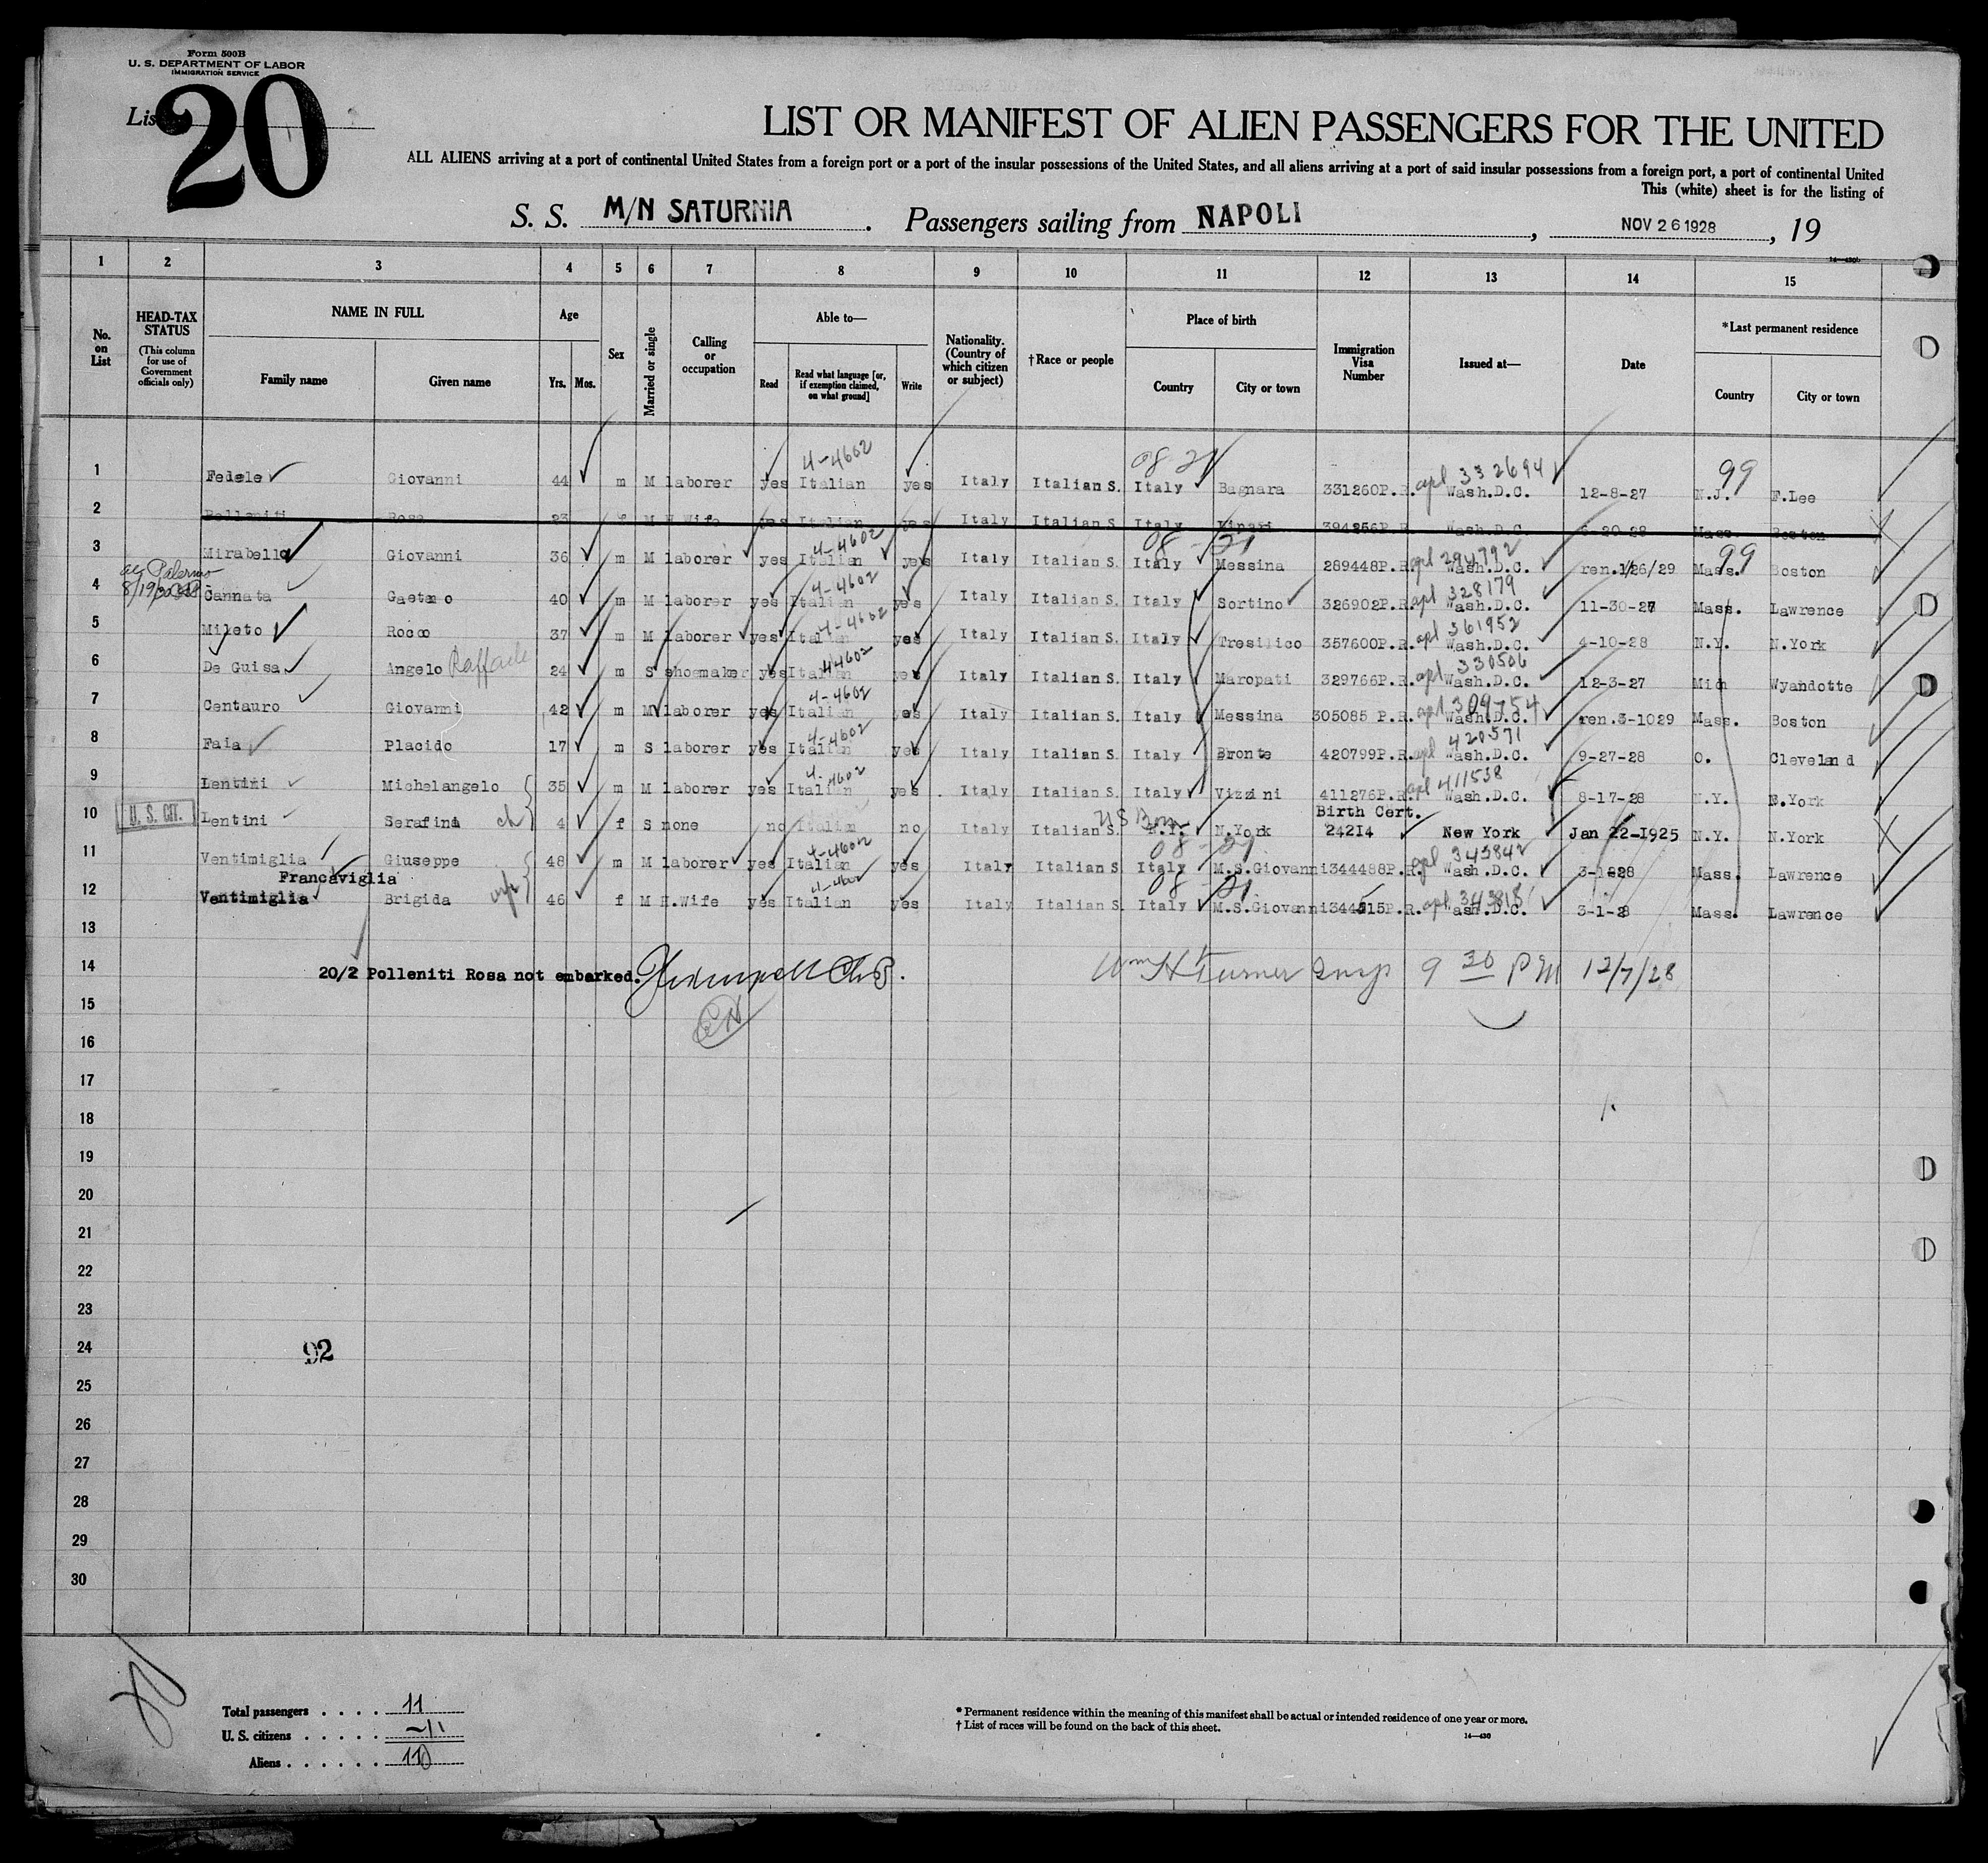 Form 500B
U. S. DEPARTMENT OF LABOR
IMMIGRATION SERVICE
List 20
LIST OR MANIFEST OF ALIEN PASSENGERS FOR THE UNITED
ALL ALIENS arriving at a port of continental United States from a foreign port or a port of the insular possessions of the United States, and all aliens arriving at a port of said insular possessions from a foreign port, a port of continental United
This (white) sheet is for the listing of
S. S. M/N SATURNIA. Passengers sailing from NAPOLI, NOV 26 1928, 19
14—430
1 2 3 4 5 6 7 8 9 10 11 12 13 14 15
No. on List
HEAD-TAX STATUS
(This column for use of Government officials only)
NAME IN FULL
Family name
Given name
Age
Yrs. Mos.
Sex
Married or single
Calling or occupation
Able to—
Read
Read what language [or, if exemption claimed, on what ground]
Write
Nationality. (Country of which citizen or subject)
†Race or people
Place of birth
Country
City or town
Immigration Visa Number
Issued at—
Date
*Last permanent residence
Country
City or town
4-4602 08 21 apl 332694 99
1 Fedele Giovanni 44 m M laborer yes Italian yes Italy Italian S. Italy Bagnara 331260P.R. Wash.D.C. 12-8-27 N.J. F.Lee
2 Polleniti Rosa 23 f M H.Wife yes Italian yes Italy Italian S. Italy 394256P.R. Wash.D.C. 6-20-28 Mass. Boston
4-4602 08 21 apl 294792 99
3 Mirabella Giovanni 36 m M laborer yes Italian yes Italy Italian S. Italy Messina 289448P.R. Wash.D.C. ren.1/26/29 Mass. Boston
Palermo 4-4602 apl 328179
4 Cannata Gaetano 40 m M laborer yes Italian yes Italy Italian S. Italy Sortino 326902P.R. Wash.D.C. 11-30-27 Mass. Lawrence
4-4602 apl 361952
5 Mileto Rocco 37 m M laborer yes Italian yes Italy Italian S. Italy Tresilico 357600P.R. Wash.D.C. 4-10-28 N.Y. N.York
44602 apl 330506
6 De Guisa Angelo Raffaele 24 m S shoemaker yes Italian yes Italy Italian S. Italy Maropati 329766P.R. Wash.D.C. 12-3-27 Mich Wyandotte
4-4602 apl 309754
7 Centauro Giovanni 42 m M laborer yes Italian yes Italy Italian S. Italy Messina 305085 P.R. Wash.D.C. ren.3-1029 Mass. Boston
4-4602 apl 420571
8 Faia Placido 17 m S laborer yes Italian yes Italy Italian S. Italy Bronte 420799P.R. Wash.D.C. 9-27-28 O. Cleveland
4-4602 apl 411538
9 Lentini Michelangelo 35 m M laborer yes Italian yes Italy Italian S. Italy Vizzini 411276P.R. Wash.D.C. 8-17-28 N.Y. N.York
U.S. CIT. US Born Birth Cert.
10 Lentini Serafina ch 4 f S none no Italian no Italy Italian S. N.Y. N.York 24214 New York Jan 22-1925 N.Y. N.York
4-4602 08 21 apl 343842
11 Ventimiglia Giuseppe 48 m M laborer yes Italian yes Italy Italian S Italy M.S.Giovanni 344488P.R. Wash.D.C. 3-1-28 Mass. Lawrence
Francaviglia 4-4602 08 21
12 Ventimiglia Brigida wife 46 f M H.Wife yes Italian yes Italy Italian S. Italy M.S.Giovanni 344515P.R. Wash.D.C. 3-1-28 Mass. Lawrence
13
14 20/2 Polleniti Rosa not embarked. Wm H Turner Insp 9 30 PM 12/7/28
15
16
17
18
19
20
21
22
23
24 92
25
26
27
28
29
30
Total passengers . . . . 11
U. S. citizens . . . . . 1
Aliens . . . . . . 10
* Permanent residence within the meaning of this manifest shall be actual or intended residence of one year or more.
† List of races will be found on the back of this sheet.
14—430